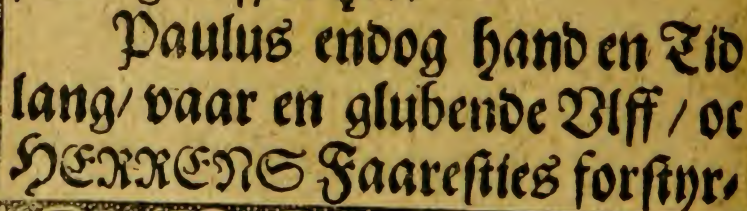 Paulus endog hand en Tid
lang/ vaar en glubende Vlff / oc
HERRENS Faaresties forstyr⸗